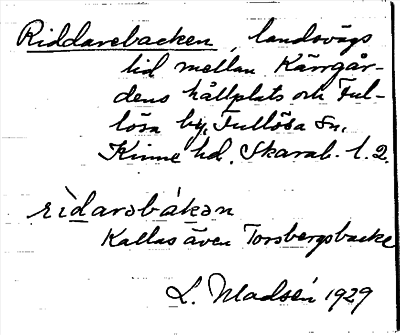 Riddarebacken, landsvägs
lid mellan Kärrgår-
dens hållplats och Ful-
lösa by, Fullösa Sn,
Kinne hd, Skarab. l. 2.
ri̱darəbákən
Kallas även Torsbergsbacke
L. Madsén 1929